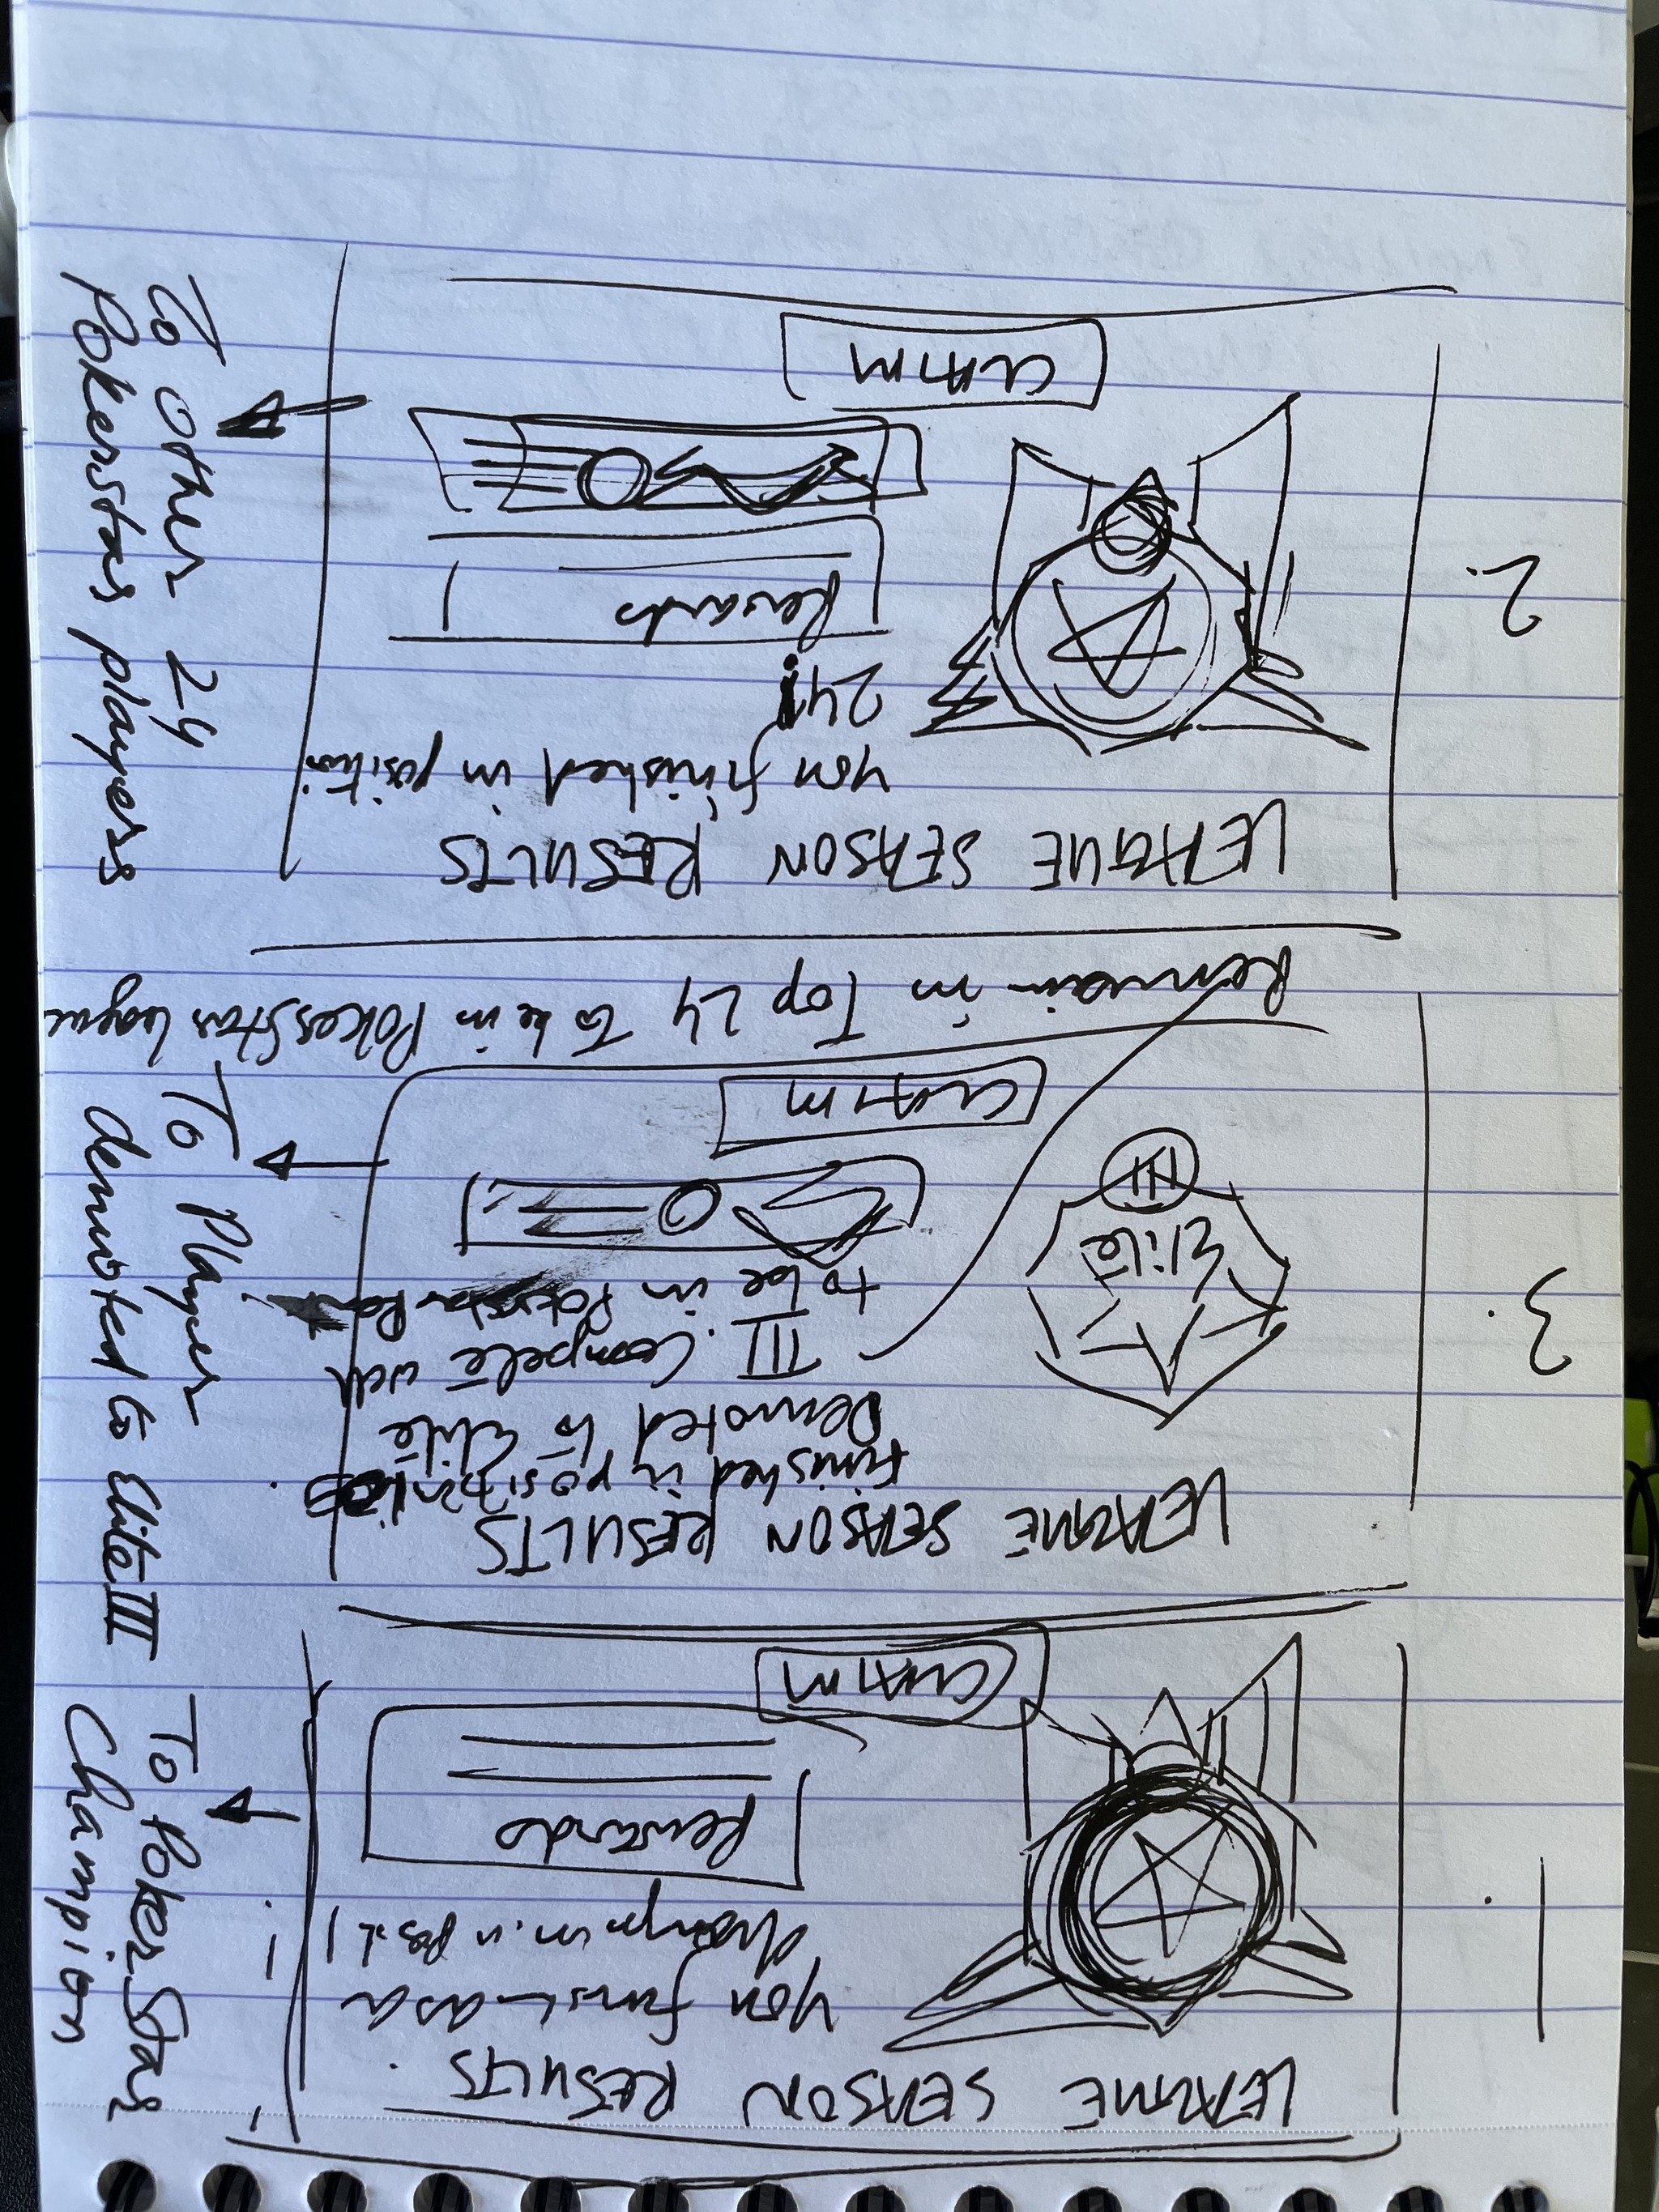 1.
LEAGUE SEASON RESULTS.
you finish as a
Champion in Pos. 1
Rewards
CLAIM
To PokerStar
Champion
3.
LEAGUE SEASON RESULTS
Finished in position
Demoted to Elite
III. Compete with
to be in Pokerstar
Elite
III
CLAIM
Remain in Top 24 To be in PokerStar League
To Player
demoted to Elite III
2.
LEAGUE SEASON RESULTS
you finished in position
24
Rewards
CLAIM
To other 24
Pokerstar players